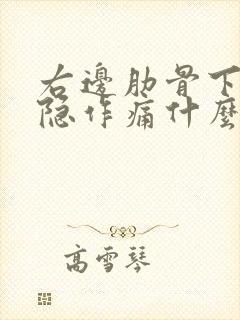 右邊肋骨下
隐作痛什麼
高雪琴